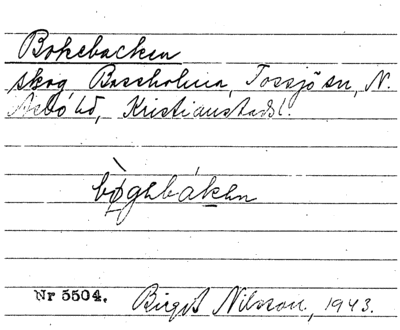 Bokebacken
skog, Bassholma, Tossjö sn, N.
Åsbo hd, Kristianstads l.
bø̀gebáken
Nr 5504. Birgit Nilsson, 1943.